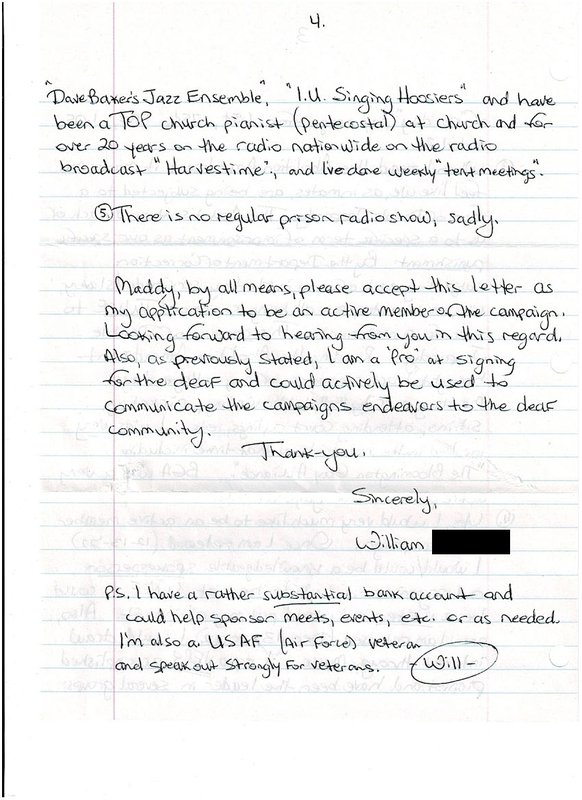 4.
"Dave Baker's Jazz Ensemble", "I.U. Singing Hoosiers" and have
been a TOP church pianist (pentecostal) at church and for
over 20 years on the radio nationwide on the radio
broadcast "Harvestime", and I've done weekly "tent meetings".
⑤ There is no regular prison radio show, sadly.
Maddy, by all means, please accept this letter as
my application to be an active member of the campaign.
Looking forward to hearing from you in this regard.
Also, as previously stated, I am a 'Pro' at signing
for the deaf and could actively be used to
communicate the campaigns endeavors to the deaf
community.
Thank-you.
Sincerely,
William
P.S. I have a rather substantial bank account and
could help sponsor meets, events, etc. or as needed.
I'm also a USAF (Air Force) veteran
and speak out strongly for veterans. -Will-